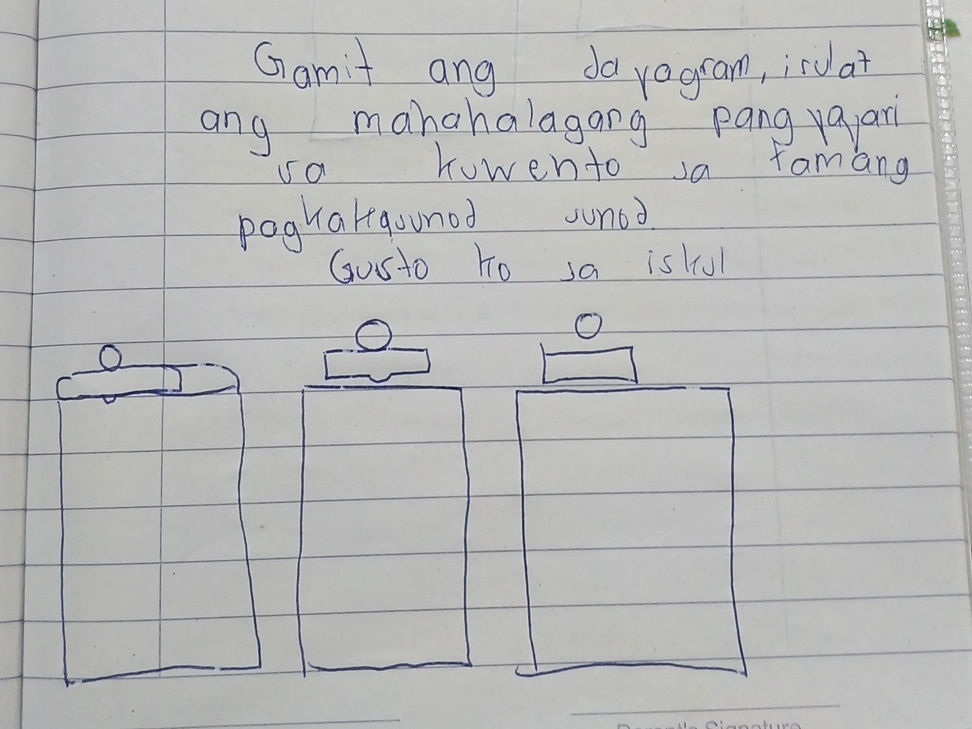 Gamit ang dayagram, isulat
ang mahahalagang pangyayari
sa kuwento sa tamang
pagkakasunod sunod.
Gusto ko sa iskul
Parent's Signature